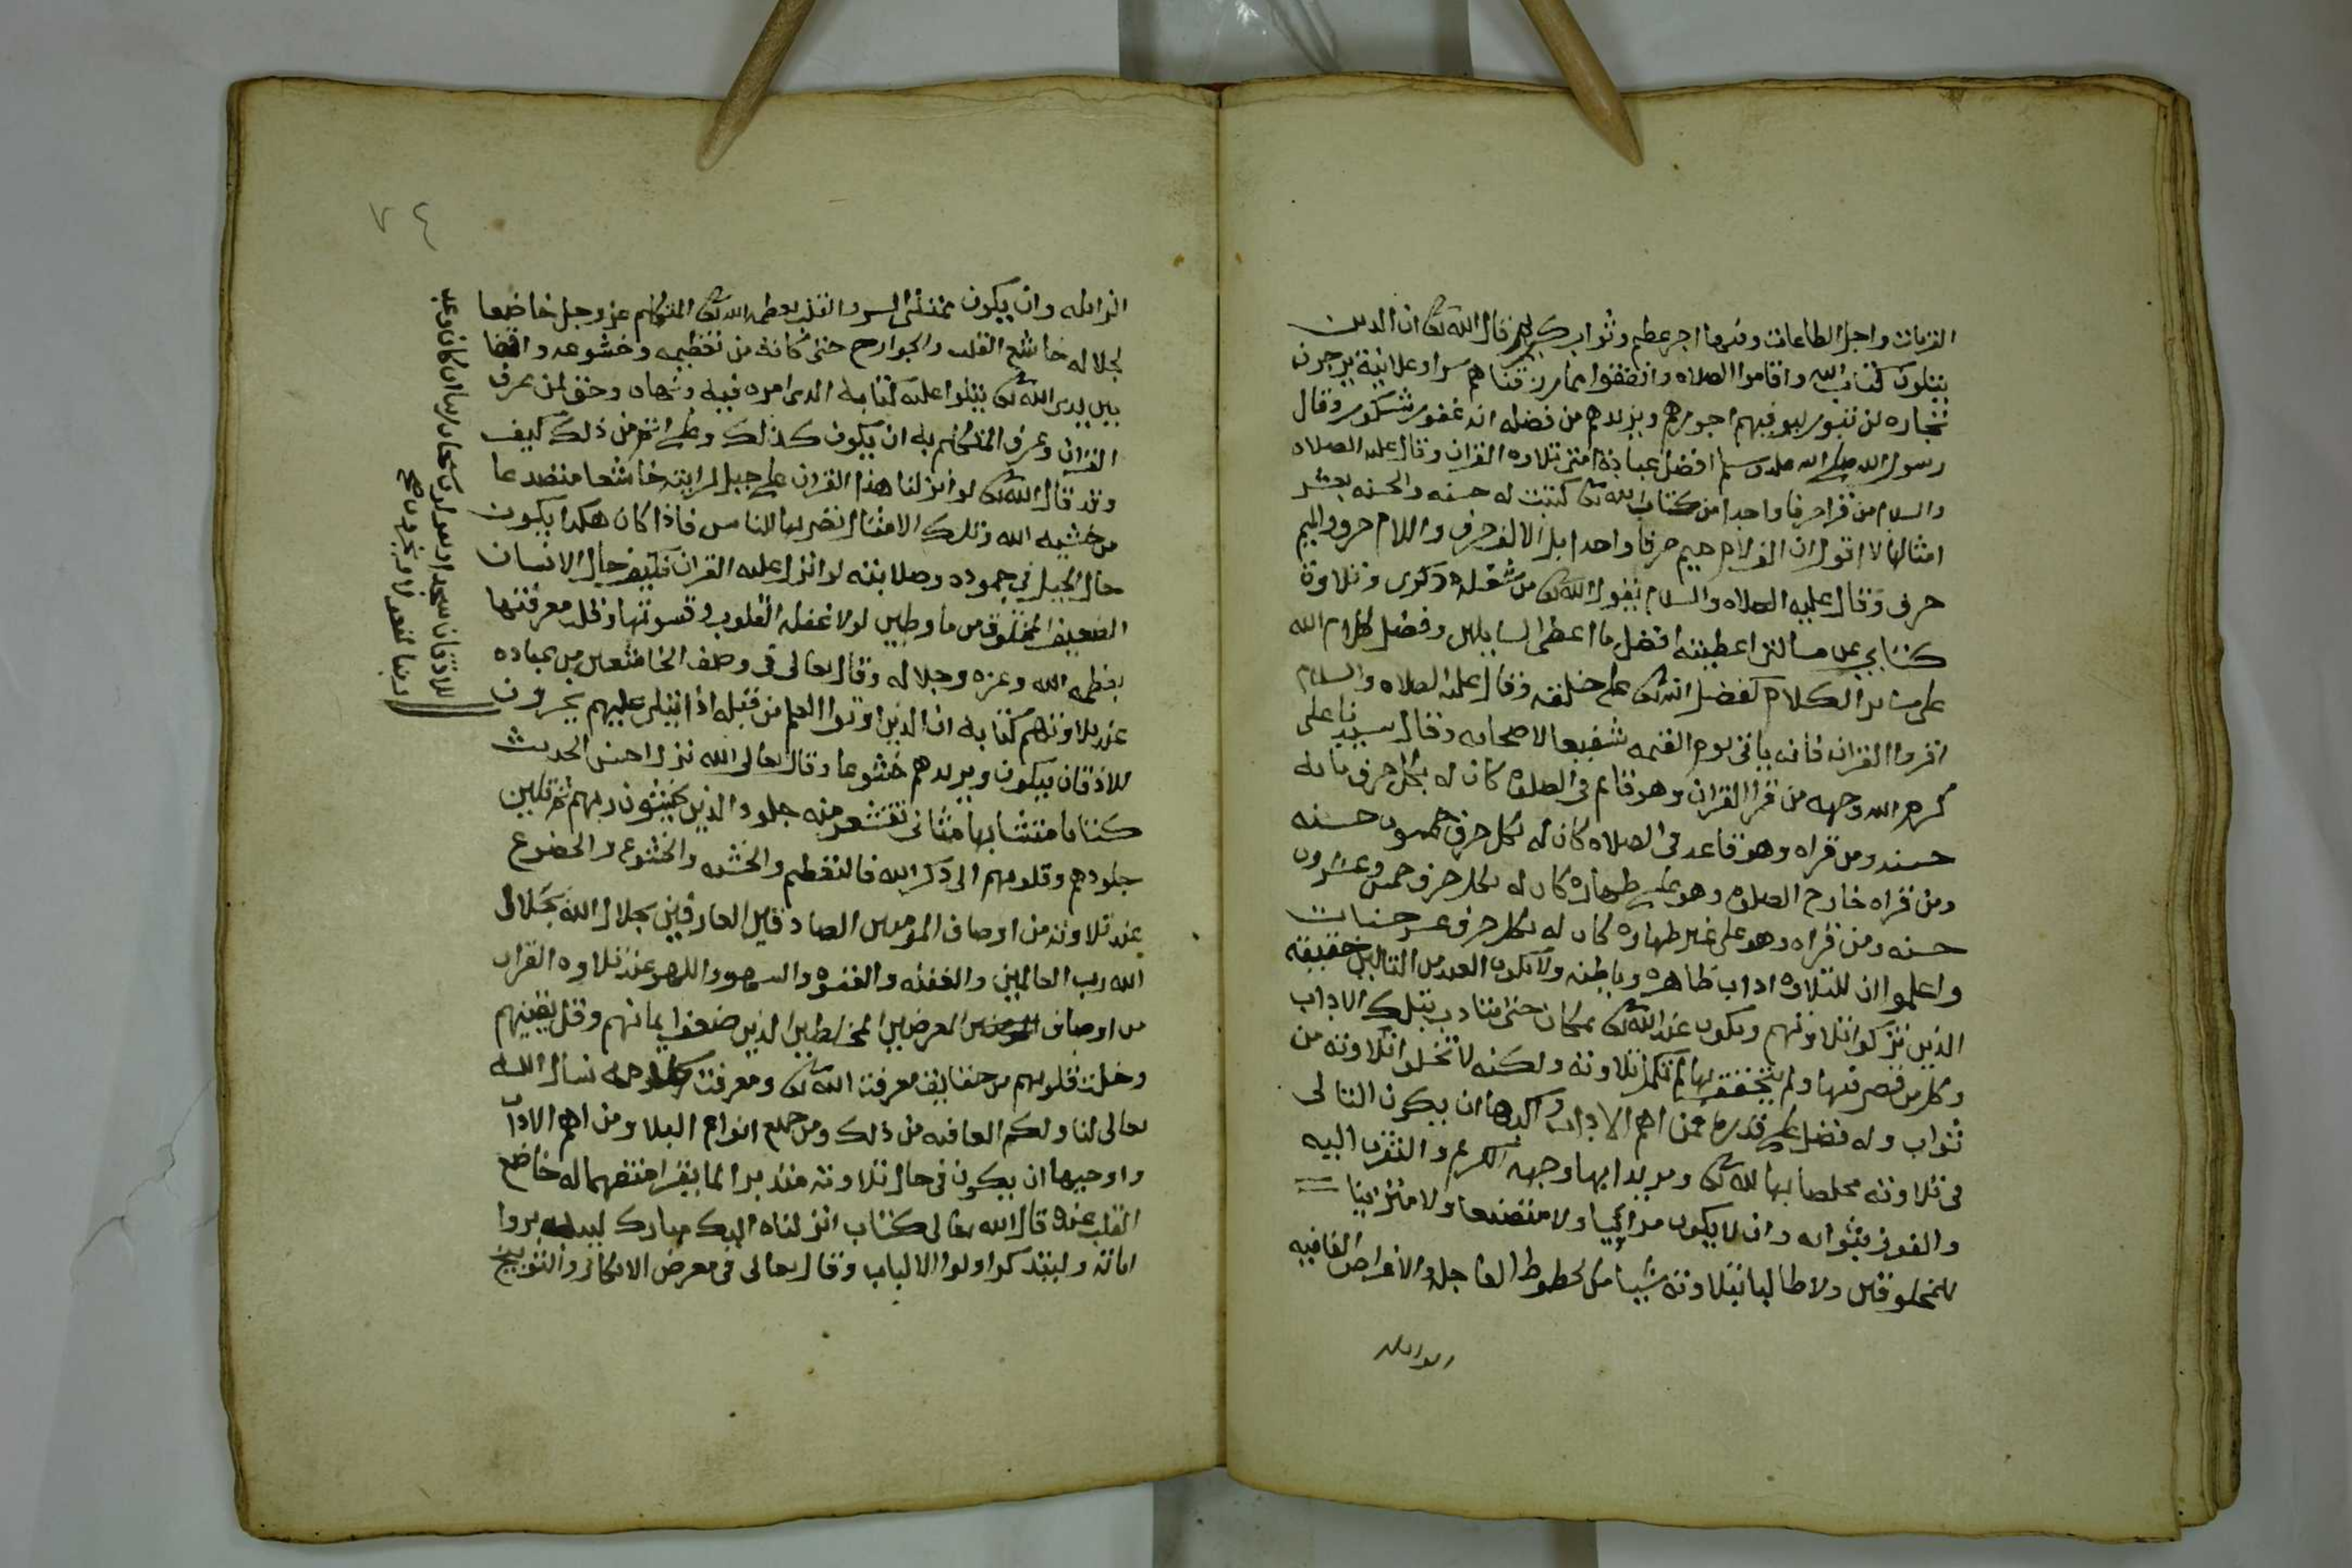 القربات واجل الطاعات وفيها اجر عظيم وثواب كريم قال الله تعالى ان الذين
يتلون كتاب الله واقاموا الصلاه وانفقوا مما رزقناهم سرا وعلانية يرجون
تجاره لن تبور ليوفيهم اجورهم ويزيدهم من فضله انه غفور شكور وقال
رسول الله صلى الله عليه وسلم افضل عبادة امتي تلاوه القران وقال عليه الصلاه
والسلام من قرا حرفا واحدا من كتاب الله تعالى كتبت له حسنه والحسنه بعشر
امثالها لا اقول ان الف لام ميم حرفا واحدا بل الالف حرف واللام حرف والميم
حرف وقال عليه الصلاه والسلام يقول الله تعالى من شغله ذكرى وتلاوة
كتابي عن مسالتي اعطيته افضل ما اعطى السايلين وفضل كلام الله
على ساير الكلام كفضل الله تعالى على خلقه وقال عليه الصلاه والسلام
اقروا القران فانه ياتي يوم القيمه شفيعا لاصحابه وقال سيدنا على
كرم الله وجهه من قرا القران وهو قايم في الصلاه كان له بكل حرف مايه
حسنه ومن قراه وهو قاعد في الصلاه كان له بكل حرف خمسون حسنه
ومن قراه خارج الصلاه وهو على طهاره كان له بكل حرف خمس وعشرون
حسنه ومن قراه وهو على غير طهاره كان له بكل حرف عشر حسنات
واعلموا ان للتلاوه اداب ظاهره وباطنه ولا يكون العبد من التالين حقيقة
الذين تزكوا تلاوتهم ويكون عند الله تعالى بمكان حتى يتادب بتلك الاداب
وكل من قصر فيها ولم يتحقق بها لم تكمل تلاوته ولكنه لا تخلوا تلاوته من
ثواب وله فضل على قدره فمن اهم الاداب واكدها ان يكون التالى
في تلاوته مخلصا بها لله تعالى ومريدا بها وجهه الكريم والتقرب اليه
والفوز بثوابه وان لا يكون مرائيا ولا متصنعا ولا متزينا
للمخلوقين ولا طالبا بتلاوته شيا من الحظوظ العاجله والاغراض الفانيه
الزايله
٧٤
الزايله وان يكون ممتلئ السر والقلب بعظمة الله تعالى المتكلم عز وجل خاضعا
لجلاله خاشع القلب والجوارح حتى كانه من تعظيمه وخشوعه واقفا
بين يدى الله تعالى يتلوا عليه كتابه الذى امره فيه ونهاه وحق لمن عرف
القران وعرف المتكلم به ان يكون كذلك وعلى اتم من ذلك كيف
وقد قال الله تعالى لو انزلنا هذا القران على جبل لرايته خاشعا متصدعا
من خشيه الله وتلك الامثال نضربها للناس فاذا كان هكذا يكون
حال الجبل في جموده وصلابته لو انزل عليه القران فكيف حال الانسان
الضعيف المخلوق من ما وطين لولا غفلة القلوب وقسوتها وقلة معرفتها
بعظمة الله وعزه وجلاله وقال تعالى في وصف الخاشعين من عباده
عند تلاوتهم كتابه ان الذين اوتوا العلم من قبله اذا يتلى عليهم يخرون
للاذقان سجدا ويقولون سبحان ربنا ان كان وعد
ربنا لمفعولا ويخرون صح
للاذقان يبكون ويزيدهم خشوعا وقال تعالى الله نزل احسن الحديث
كتابا متشابها مثاني تقشعر منه جلود الذين يخشون ربهم ثم تلين
جلودهم وقلوبهم الى ذكر الله فالتعظيم والخشيه والخشوع والخضوع
عند تلاوته من اوصاف المومنين الصادقين العارفين بجلال الله بجلال
الله رب العالمين والغفله والقسوه والسهو واللهو عند تلاوه القران
من اوصاف المعرضين المخلطين الذين ضعف ايمانهم وقل يقينهم
وخلت قلوبهم من حقايق معرفت الله تعالى ومعرفت كلامه نسال الله
تعالى لنا ولكم العافيه من ذلك ومن جميع انواع البلا ومن اهم الاداب
واوجبها ان يكون في حال تلاوته متدبرا لما يقرا متفهما له خاضع
القلب عنده قال الله تعالى كتاب انزلناه اليك مبارك ليدبروا
اياته وليتذكر اولوا الالباب وقال تعالى في معرض الانكار والتوبيخ